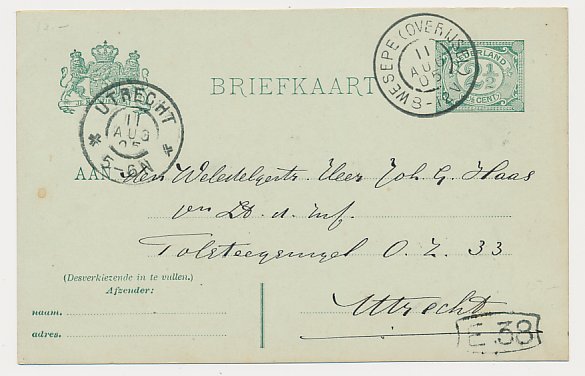 WESEPE (OVERIJSEL)
11
AUG
05
8-12V
NEDERLAND
2½
CENT
BRIEFKAART
UTRECHT
11
AUG
05
5-6N
AAN den Weledelgestr. Heer Joh G. Haas
Lt. d. Inf.
Tolsteegsingel O.Z. 33
Utrecht
(Desverkiezende in te vullen.)
Afzender:
naam.
adres.
E 38